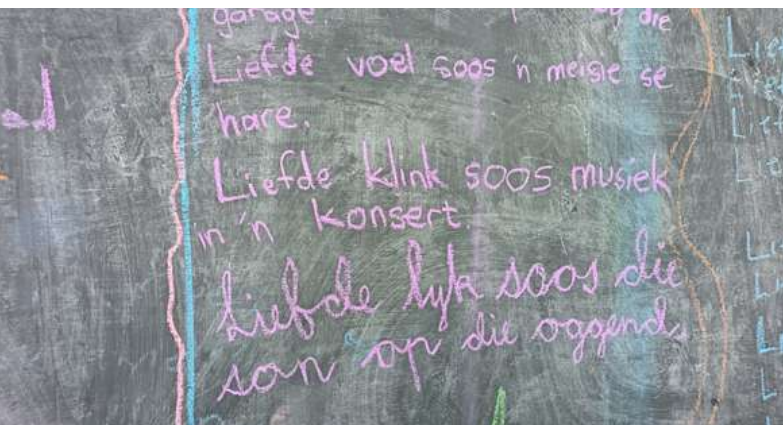 garage.
die
Liefde voel soos 'n meisie se
hare.
Liefde klink soos musiek
in 'n konsert.
Liefde lyk soos die
son op die oggend.